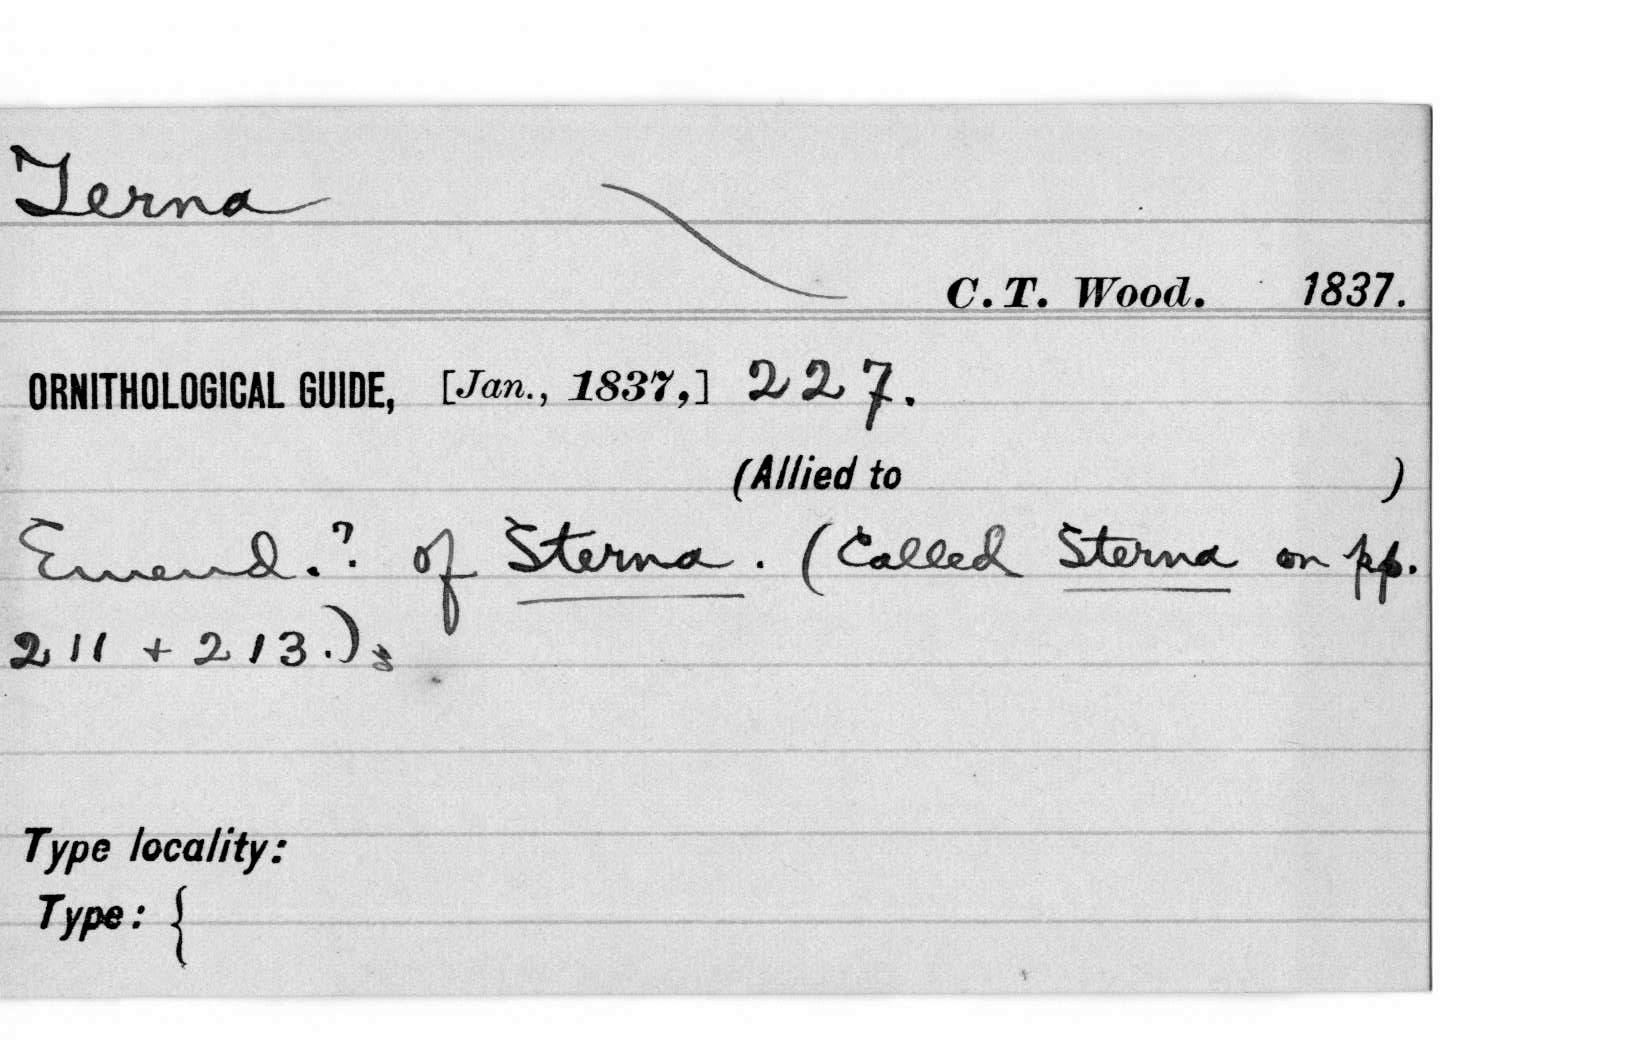 Terna
C. T. Wood. 1837.
ORNITHOLOGICAL GUIDE, [Jan., 1837,] 227.
(Allied to )
Emend.? of Sterna. (Called Sterna on pp.
211 + 213.)
Type locality:
Type: {